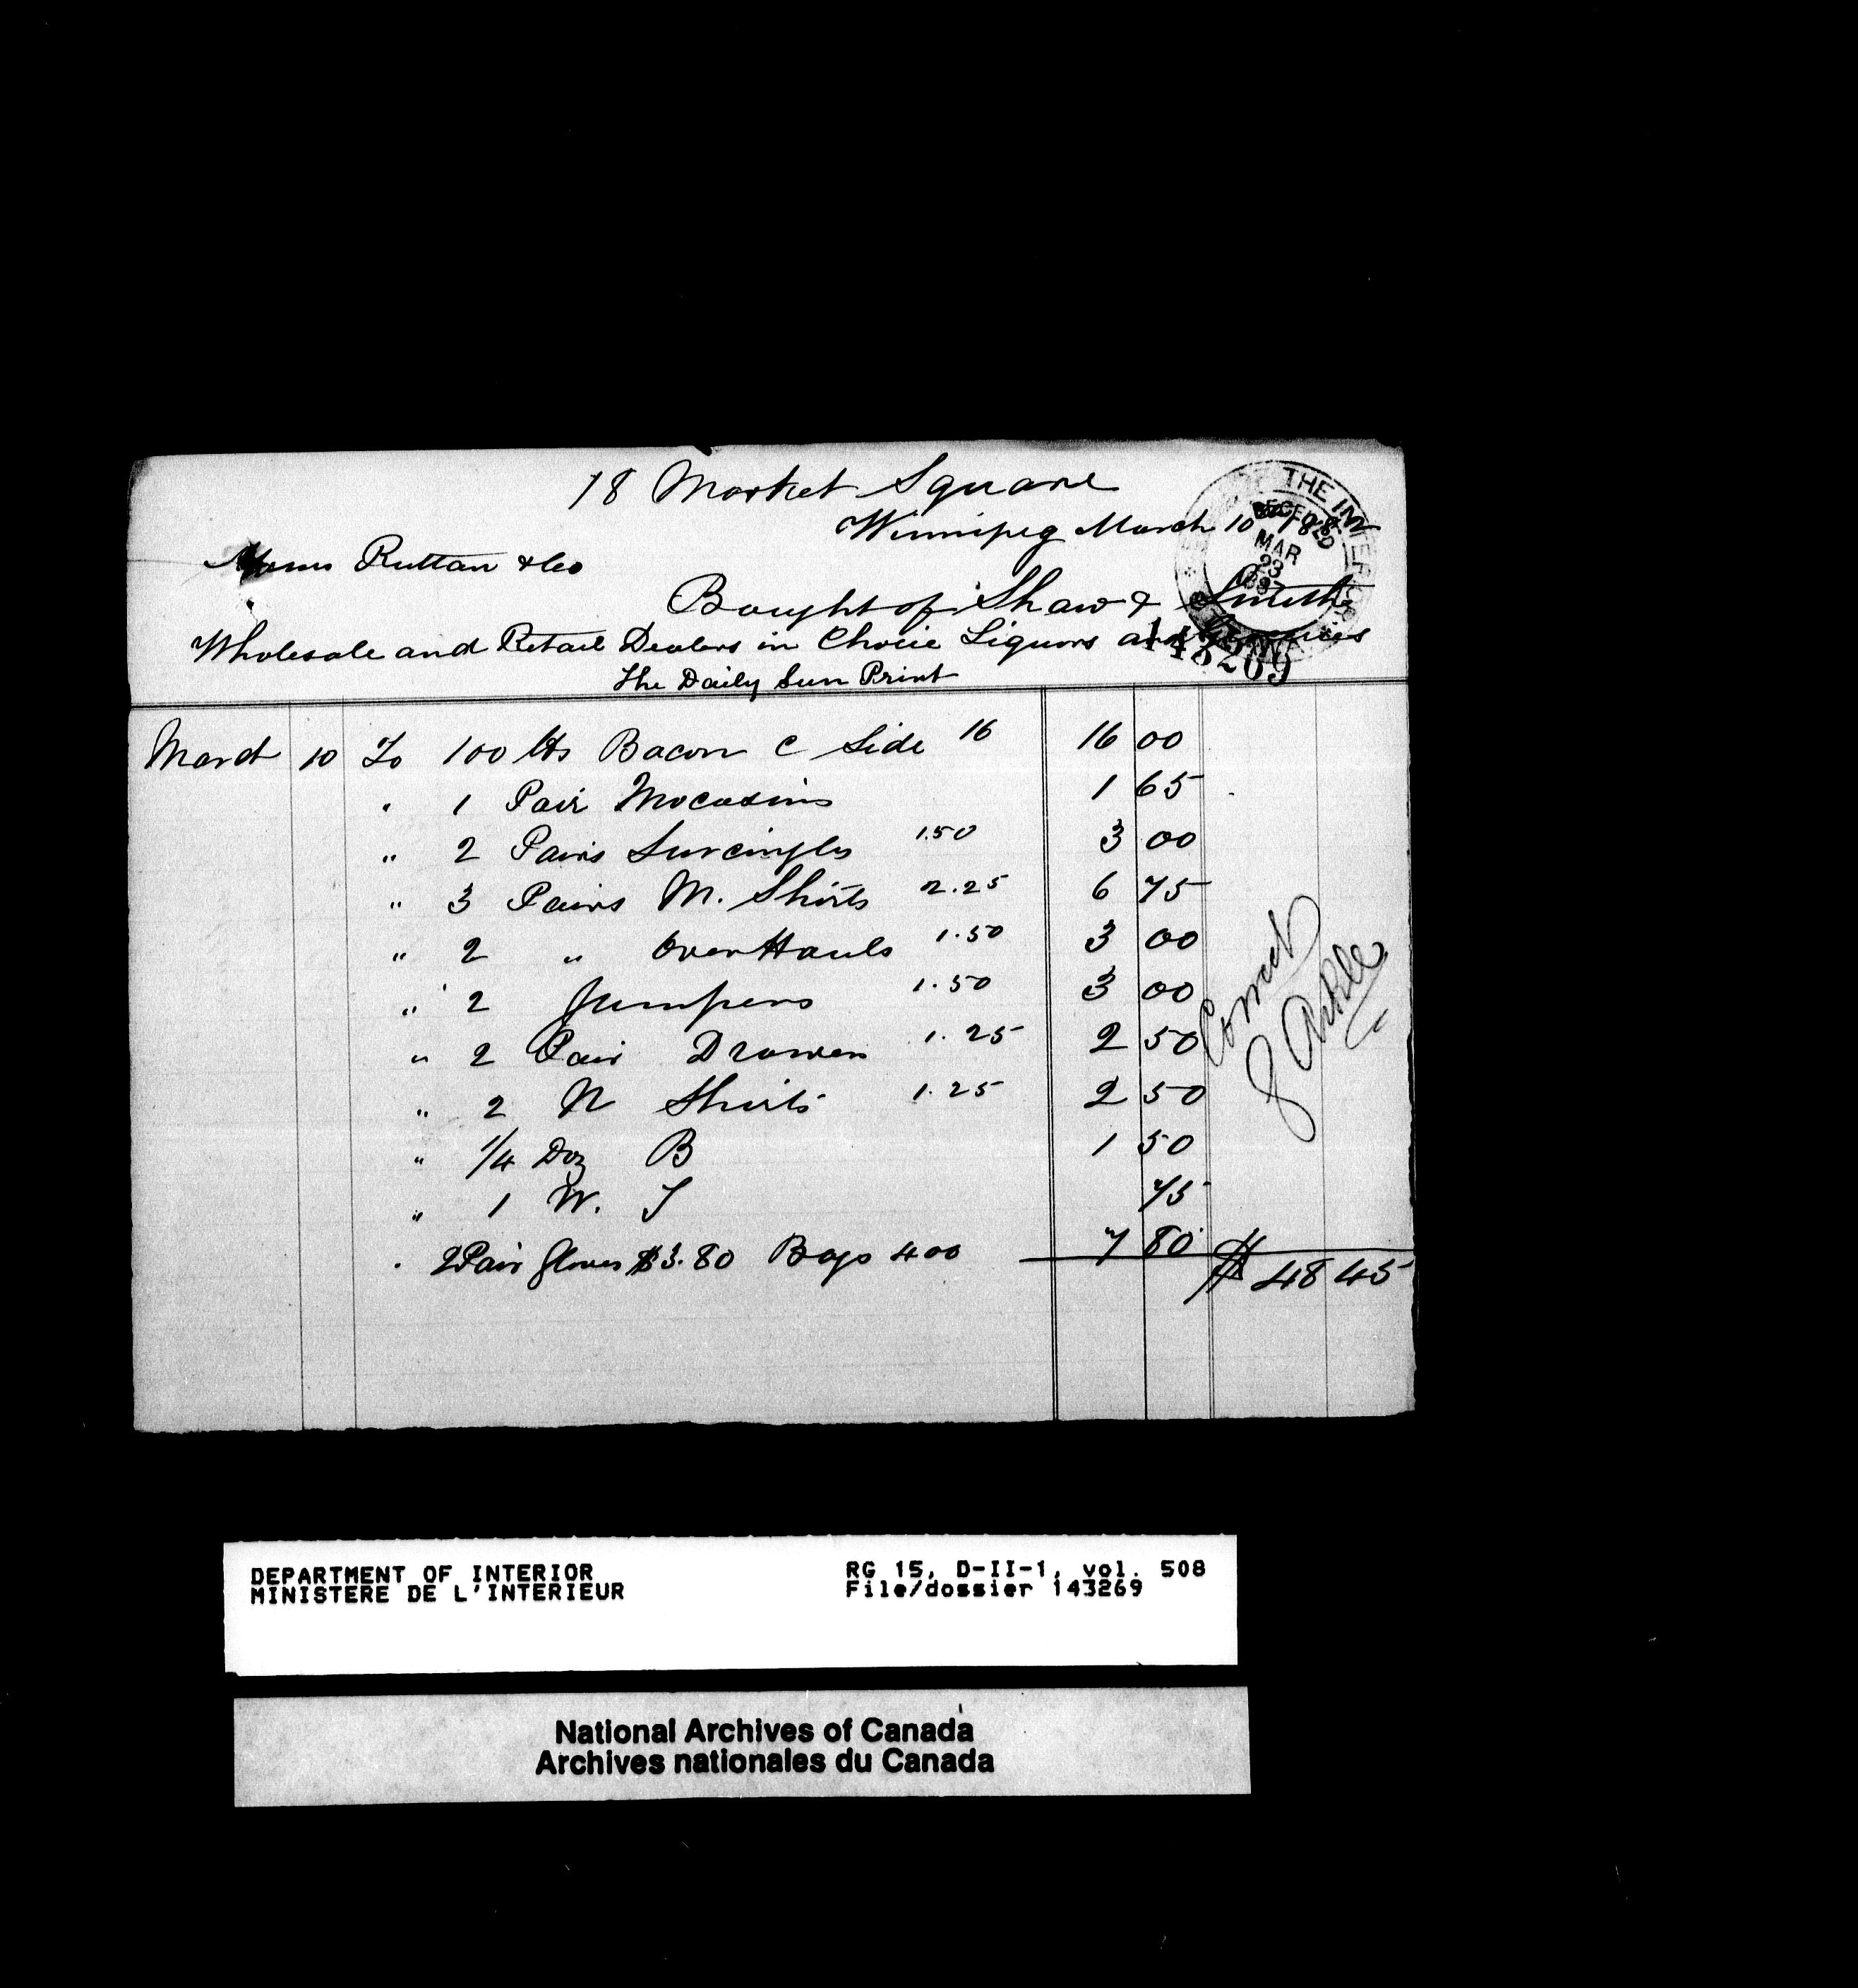 18 Market Square
Winnipeg March 10 188
Ruttan & Co
Bought of Shaw & Smith
Wholesale and Retail Dealers in Choice Liquors and Groceries
The Daily Sun Print
THE INTERIOR
RECEIVED
MAR
23
1887
143269
March 10 To 100 lbs Bacon C Side 16 16 00
" 1 Pair Mocasins 1 65
" 2 Pairs Surcingles 1.50 3 00
" 3 Pairs M. Shirts 2.25 6 75
" 2 " OverHauls 1.50 3 00
" 2 Jumpers 1.50 3 00
" 2 Pair Drawers 1.25 2 50
" 2 N Shirts 1.25 2 50
" 1/4 Doz B 1 50
" 1 W. T 75
" 2 Pair Gloves $3.80 Bags 400 7 80
$ 48 45
Correct
DEPARTMENT OF INTERIOR RG 15, D-II-1, vol. 508
MINISTERE DE L'INTERIEUR File/dossier 143269
National Archives of Canada
Archives nationales du Canada